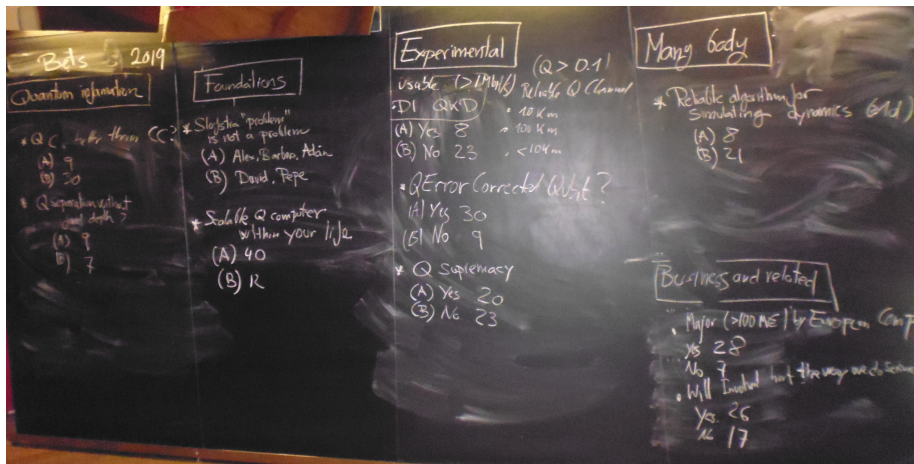 Bets 2019
Quantum information
* Q C better than CC?
(A) 9
(B) 30
* Q separation without depth?
(A) 9
(B) 7
Foundations
* "problem"
is not a problem
(A) Alex, Barbara, Adán
(B) David, Pepe
* Scalable Q computer
within your life
(A) 40
(B) 12
Experimental
(Q > 0.1)
usable (>1Mbit/s) Reliable Q Channel
DI QKD
• 10 Km
(A) Yes 8
• 100 Km
(B) No 23
• <10 Km
* Q Error Corrected Qubit?
(A) Yes 30
(B) No 9
* Q supremacy
(A) Yes 20
(B) No 23
Many body
* Reliable algorithm for
simulating dynamics
(A) 8
(B) 21
Business and related
• Major (>100 M€) by European Comp
Yes 28
No 7
• Will
Yes 26
No 17